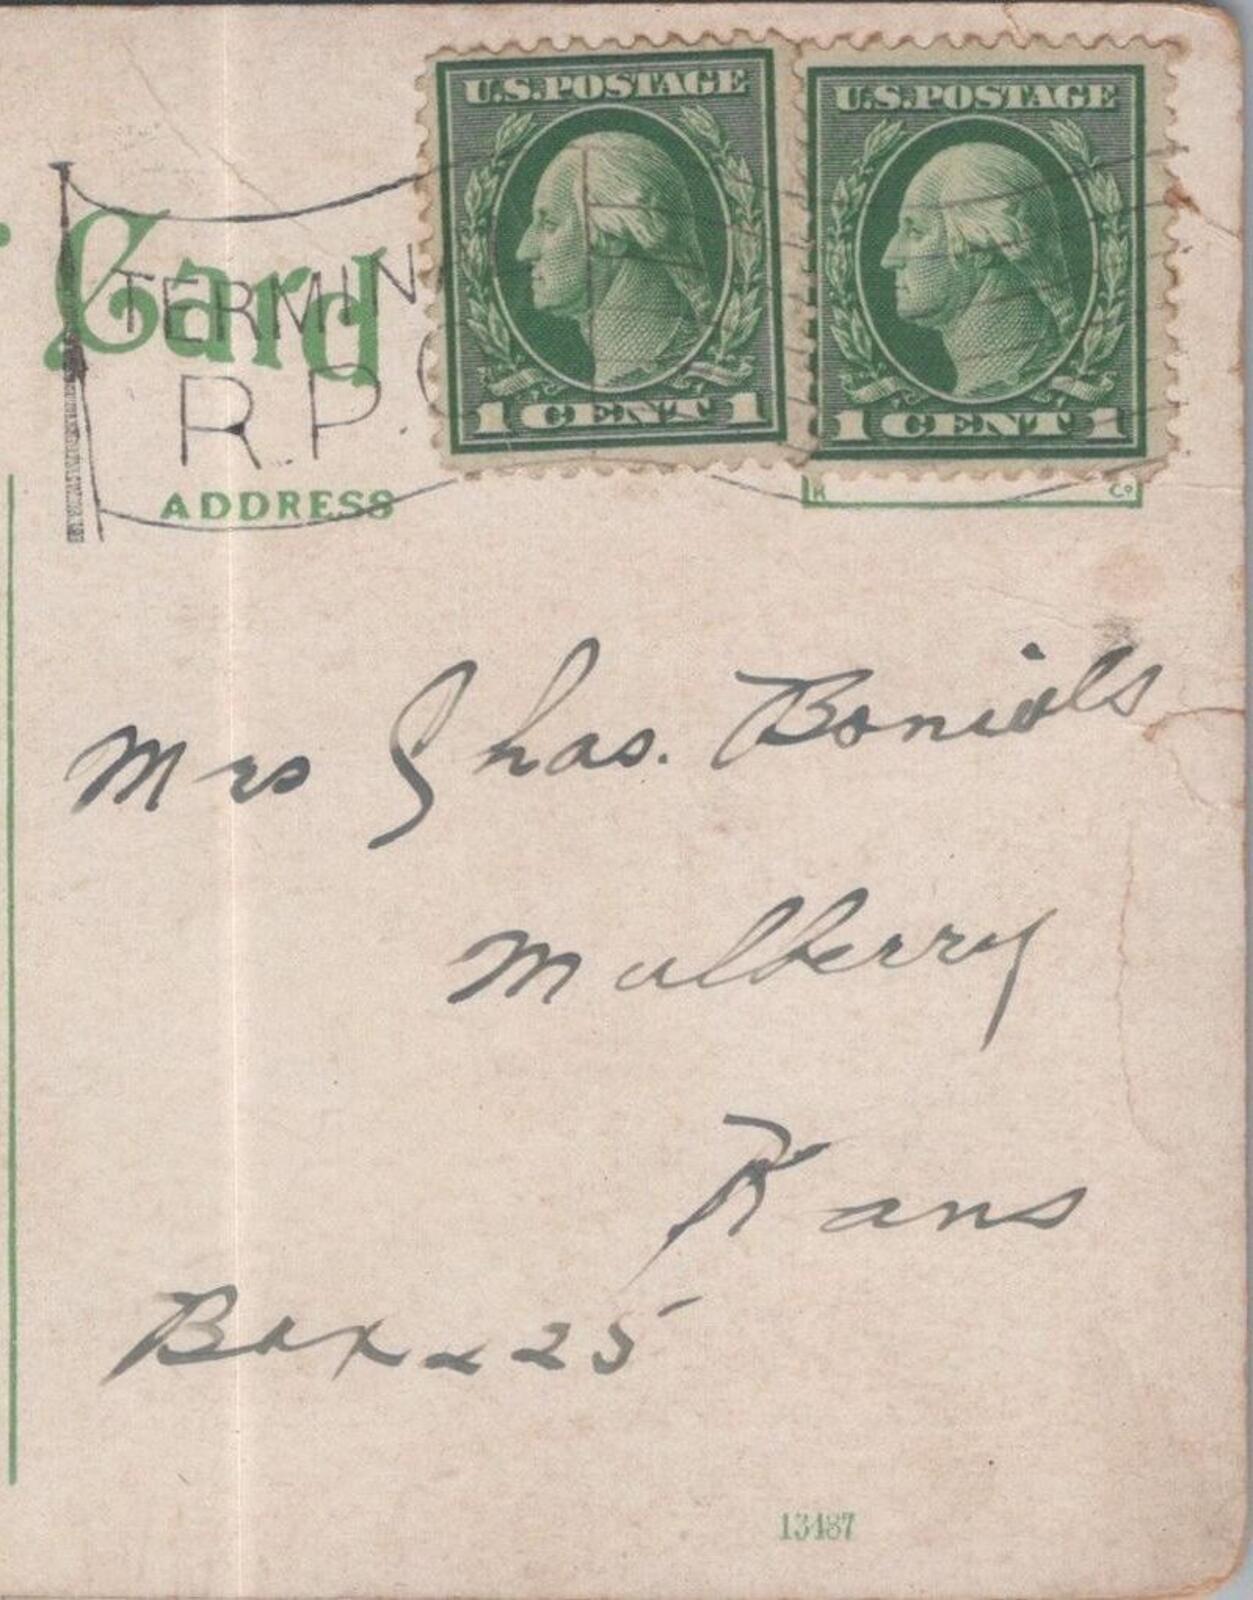 U.S.POSTAGE U.S.POSTAGE
Card
TERMIN
R.P.
1 CENT 1 1 CENT 1
ADDRESS
Mrs Chas.
Mulberry
Kans
Box 225
13487